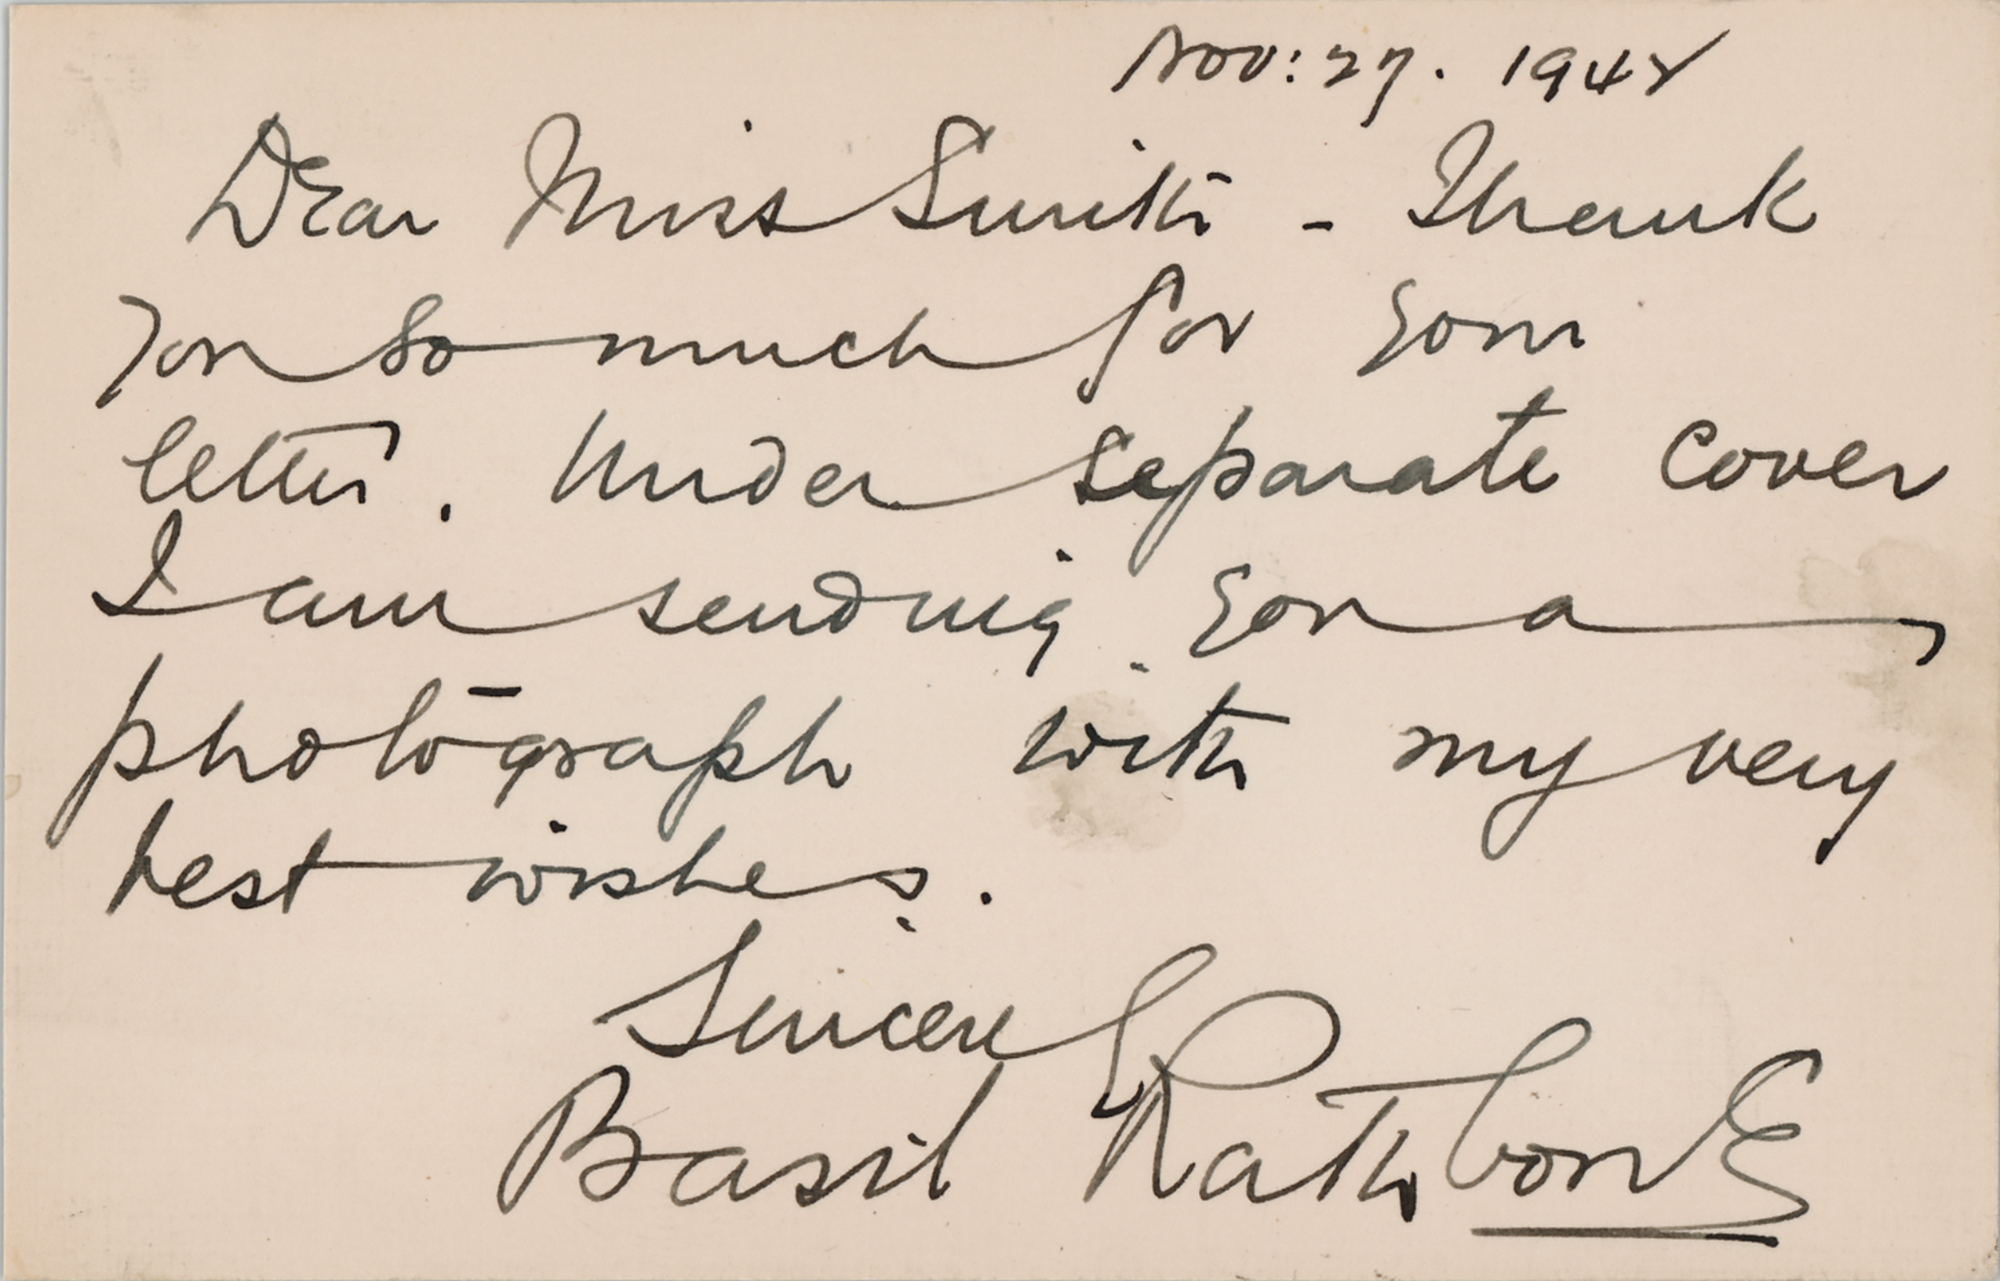 Nov: 27. 1942
Dear Miss Smith - Thank
you so much for your
letter. Under separate cover
I am sending you a
photograph with my very
best wishes.
Sincerely
Basil Rathbone